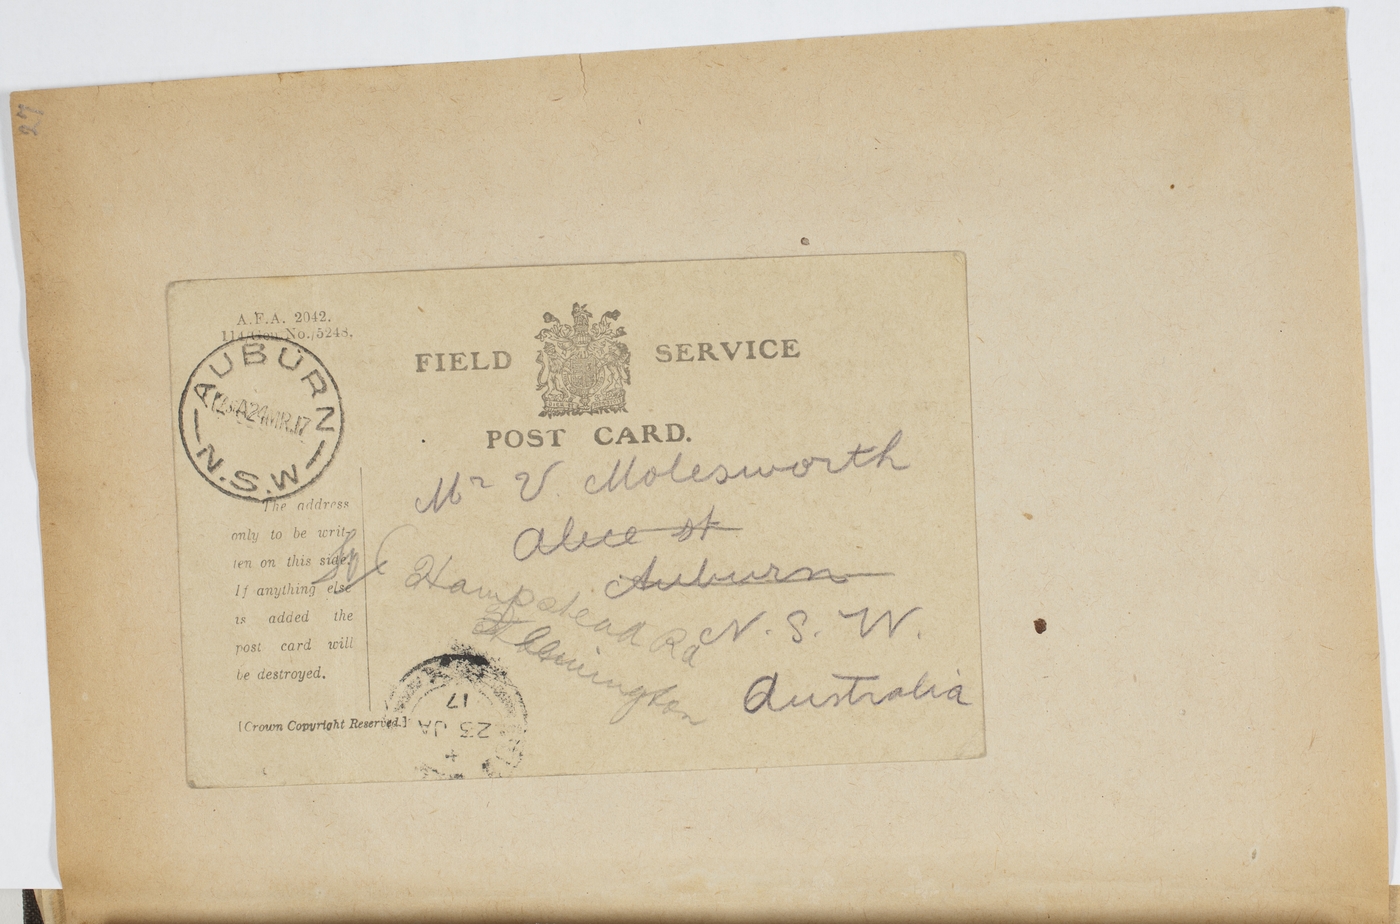 27
A.F.A. 2042.
No. 5248.
AUBURN
24 MR. 17
N.S.W
FIELD SERVICE
POST CARD.
The address
only to be writ-
ten on this side.
If anything else
is added the
post card will
be destroyed.
[Crown Copyright Reserved.]
Mr V. Molesworth
Alice st
Auburn
Hampstead Rd
Flemington
N. S. W.
Australia
23 JA
17